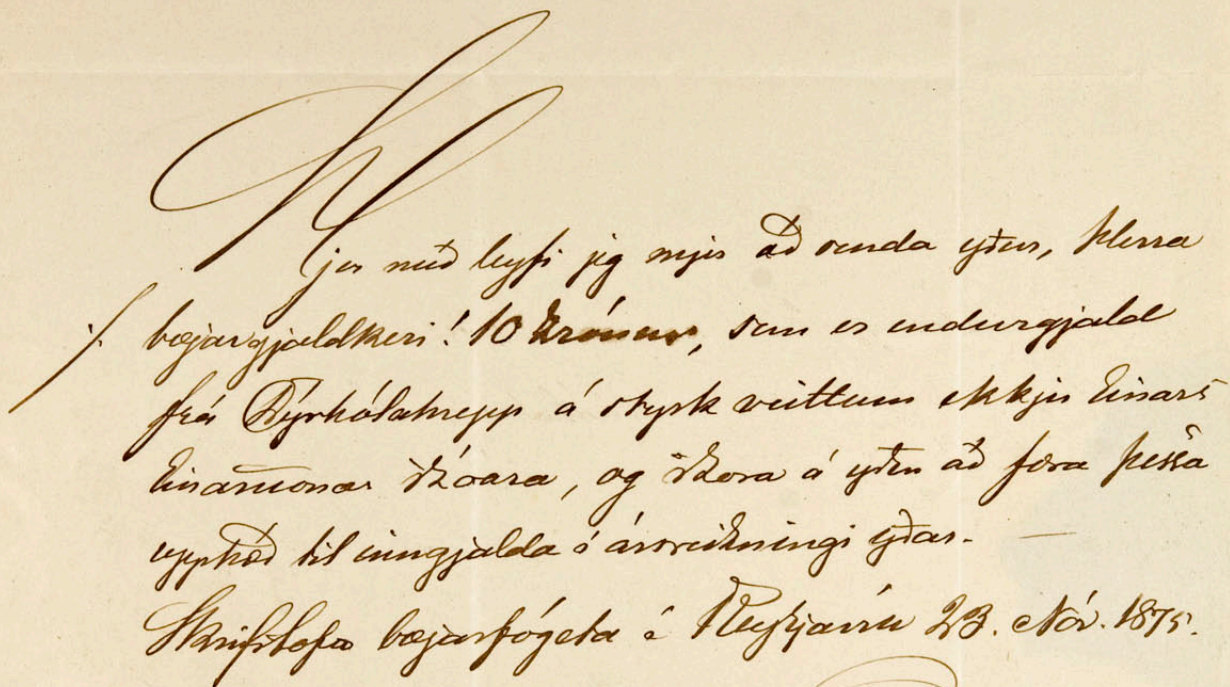 Hjer með leyfi jeg mjer að senda yður, herra
bæjargjaldkeri! 10 krónur, sem er endurgjald
frá Dyrhólahrepp á styrk veittum ekkju Einars
Einarssonar skóara, og skora á yður að færa þessa
upphæð til inngjalda í ársreikningi yðar. —
Skrifstofa bæjarfógeta í Reykjavík 23. Nóv. 1875.